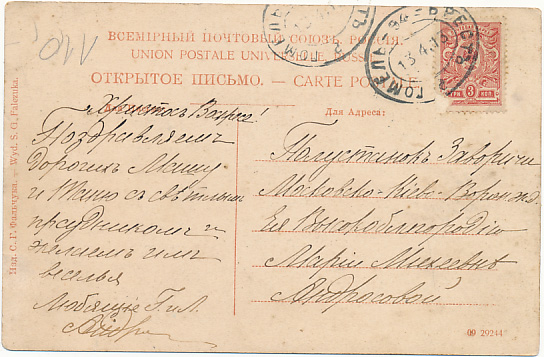 ВСЕМІРНЫЙ ПОЧТОВЫЙ СОЮЗЪ. РОССІЯ.
UNION POSTALE UNIVERSELLE. RUSSIE.
ОТКРЫТОЕ ПИСЬМО. — CARTE POSTALE.
Христосъ Воскресъ!
Поздравляемъ
дорогихъ Машу
и Ваню съ свѣтлымъ
праздникомъ и
желаемъ имъ
веселья
Любящіе Г. и Л.
Для Адреса:
Полустанокъ Заворичи
Московско-Кіево-Воронеж.
Ея Высокоблагородію
Маріи Михеевнѣ
Андросовой
3 КОП
ГОМЕЛЬ
БРЕСТЪ
13.4.10
Изд. С. Г. Фальчука. — Wyd. S. G. Falczuka.
09 29244